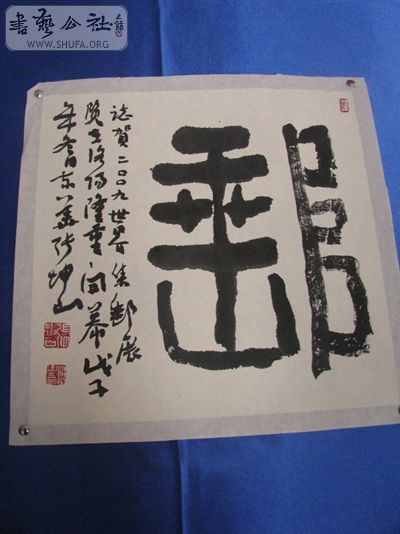 書藝公社
WWW.SHUFA.ORG
郵
誌賀二〇〇九世界集郵展
覽在洛陽隆重開幕戊子
年冬張坤山